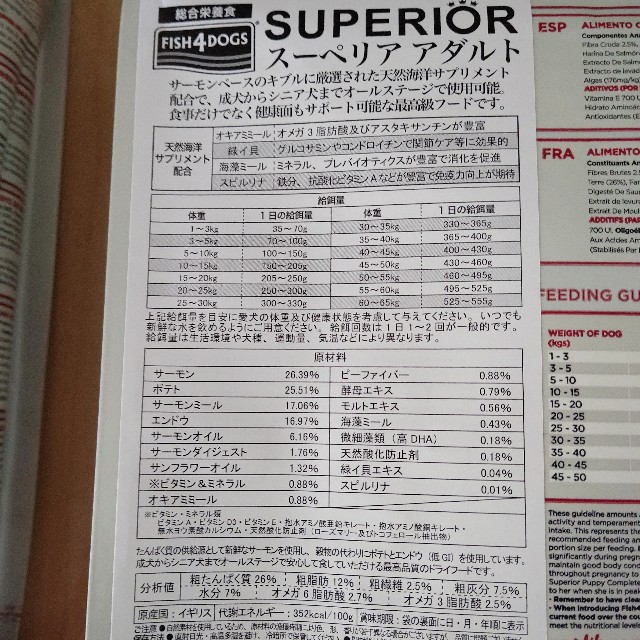 総合栄養食
FISH4DOGS
SUPERIOR
スーペリア アダルト
サーモンベースのキブルに厳選された天然海洋サプリメント
配合で、成犬からシニア犬までオールステージで使用可能。
食事だけでなく健康面もサポート可能な最高級フードです。
天然海洋
サプリメント
配合
オキアミミール オメガ3脂肪酸及びアスタキサンチンが豊富
緑イ貝 グルコサミンやコンドロイチンで関節ケア等に効果的
海藻ミール ミネラル、プレバイオティクスが豊富で消化を促進
スピルリナ 鉄分、抗酸化ビタミンAなどが豊富で免疫力向上が期待
給餌量
体重 1日の給餌量 体重 1日の給餌量
1~3kg 35~70g 30~35kg 330~365g
3~5kg 70~100g 35~40kg 365~400g
5~10kg 100~150g 40~45kg 400~430g
10~15kg 150~205g 45~50kg 430~460g
15~20kg 205~250g 50~55kg 460~495g
20~25kg 250~300g 55~60kg 495~525g
25~30kg 300~330g 60~65kg 525~555g
上記給餌量を目安に愛犬の体重及び健康状態を考慮して与えてください。いつでも
新鮮な水を飲めるようにご用意ください。給餌回数は1日1~2回が一般的です。
給餌量は生活環境や犬種、運動量、気温などにより異なります。
原材料
サーモン 26.39% ビーファイバー 0.88%
ポテト 25.51% 酵母エキス 0.79%
サーモンミール 17.06% モルトエキス 0.56%
エンドウ 16.97% 海藻ミール 0.43%
サーモンオイル 6.16% 微細藻類(高DHA) 0.18%
サーモンダイジェスト 1.76% 天然酸化防止剤 0.18%
サンフラワーオイル 1.32% 緑イ貝エキス 0.04%
※ビタミン&ミネラル 0.88% スピルリナ 0.01%
オキアミミール 0.88%
※ビタミン・ミネラル類
ビタミンA・ビタミンD3・ビタミンE・抱水アミノ酸亜鉛キレート・抱水アミノ酸銅キレート・
無水ヨウ素酸カルシウム・天然酸化防止剤(ローズマリー及びトコフェロール抽出物)
たんぱく質の供給源として新鮮なサーモンを使用し、穀物の代わりにポテトとエンドウ(低GI)を使用しています。
成犬からシニア犬までオールステージで安心して食していただける最高品質のドライフードです。
分析値 粗たんぱく質26% 粗脂肪12% 粗繊維2.5% 粗灰分7.5%
水分7% オメガ6脂肪酸2.7% オメガ3脂肪酸2.5%
原産国:イギリス 代謝エネルギー:352kcal/100g 賞味期限:袋の裏面に日・月・年順に表示
ESP
ALIMENTO
Fibra Cruda 2.5%,
Harina De Salmón
Extracto De Salmón
Extracto de levadura
Algas (176mg/kg)
ADITIVOS (POR
Vitamina E 700
Hidrato Aminoácidos
Antioxidantes
FRA
ALIMENTO
Constituants
Fibres Brutes 2.5%
Terre (26%),
Digesté de Saumon
Extrait de Levure
Extrait De Moule
ADDITIFS (PAR
700 UI.
Aux Acides
(Stabilisés Par
FEEDING
WEIGHT OF DOG
(kgs)
1 - 3
3 - 5
5 - 10
10 - 15
15 - 20
20 - 25
25 - 30
30 - 35
35 - 40
40 - 45
45 - 50
These guideline amounts
activity and temperament
intake. This represents the
recommended feeding
portion size per feeding.
significantly during pregnancy
maintain good body
throughout pregnancy to
Superior Puppy Complete
to her when she is in peak
• Remember to have clean
• When introducing Fish4Dogs
current food over the
meet the nutritional levels